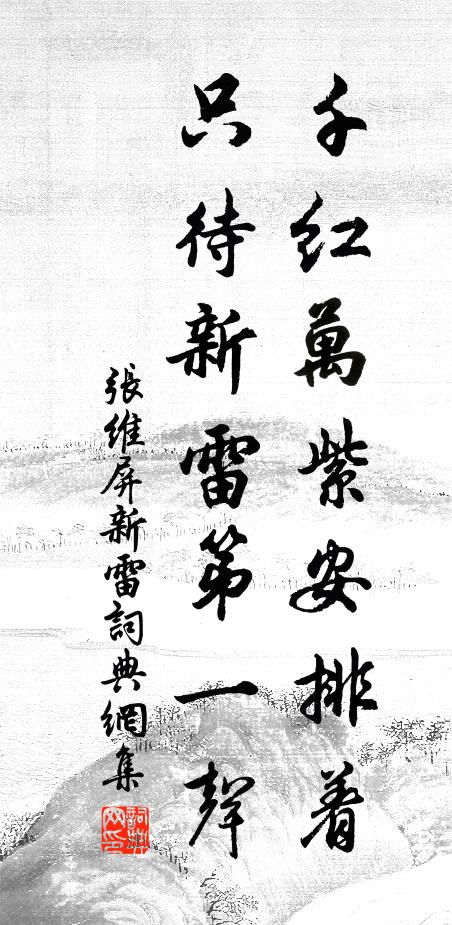 千红萬紫安排着
只待新雷第一聲
張維屏新雷詞典網集
詞典網印